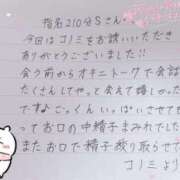 指名210分Sさん
今回はコノミをお誘いいただき
ありがとうございました!!
会う前からオキニトークで会話
たくさんしてやっと会えて嬉しかった
ですなごっくんいっぱいさせてもら
ってお口の中精子まみれでした
またお口で精子搾り取らせて
コノミより